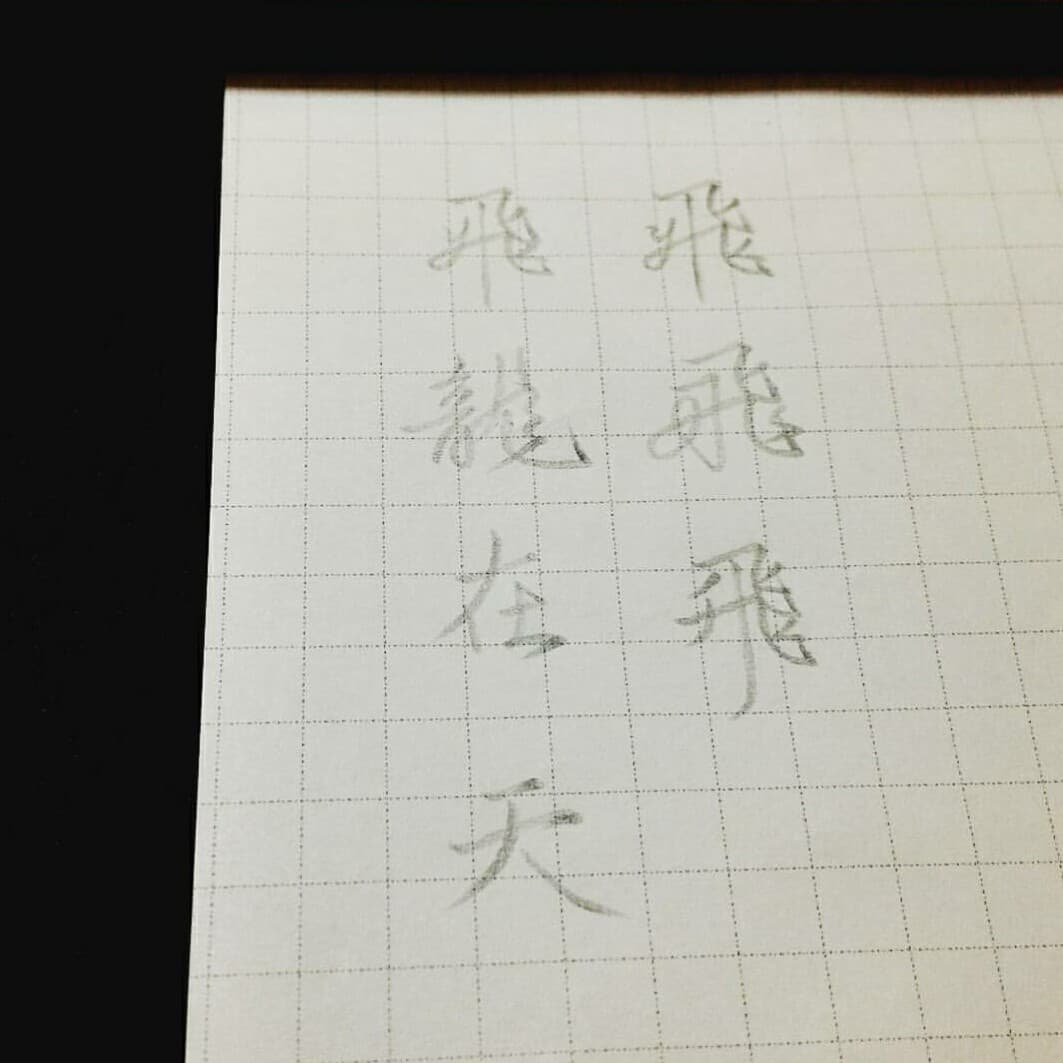 飛飛飛
飛龍在天